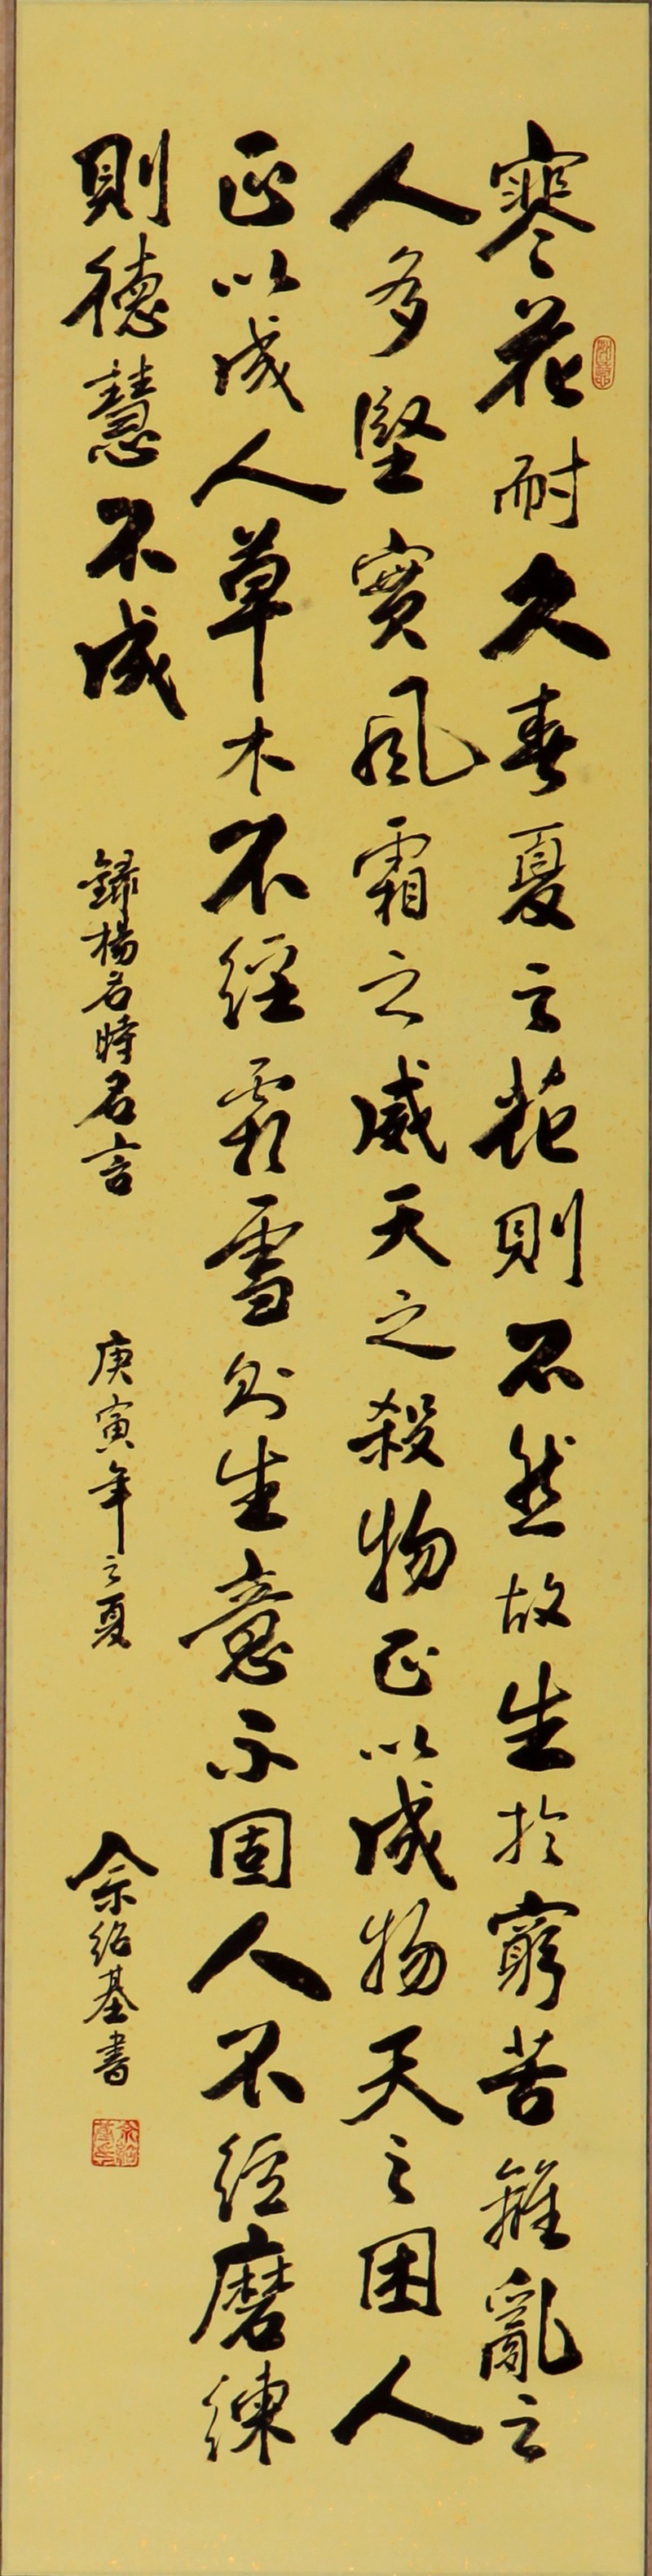 寒花耐久春夏之花則不然故生於窮苦雜亂之
人多堅實風霜之威天之殺物正以成物天之困人
正以成人草木不經霜雪則生意不固人不經磨練
則德慧不成
錄楊名時名言
庚寅年之夏
佘紹基書